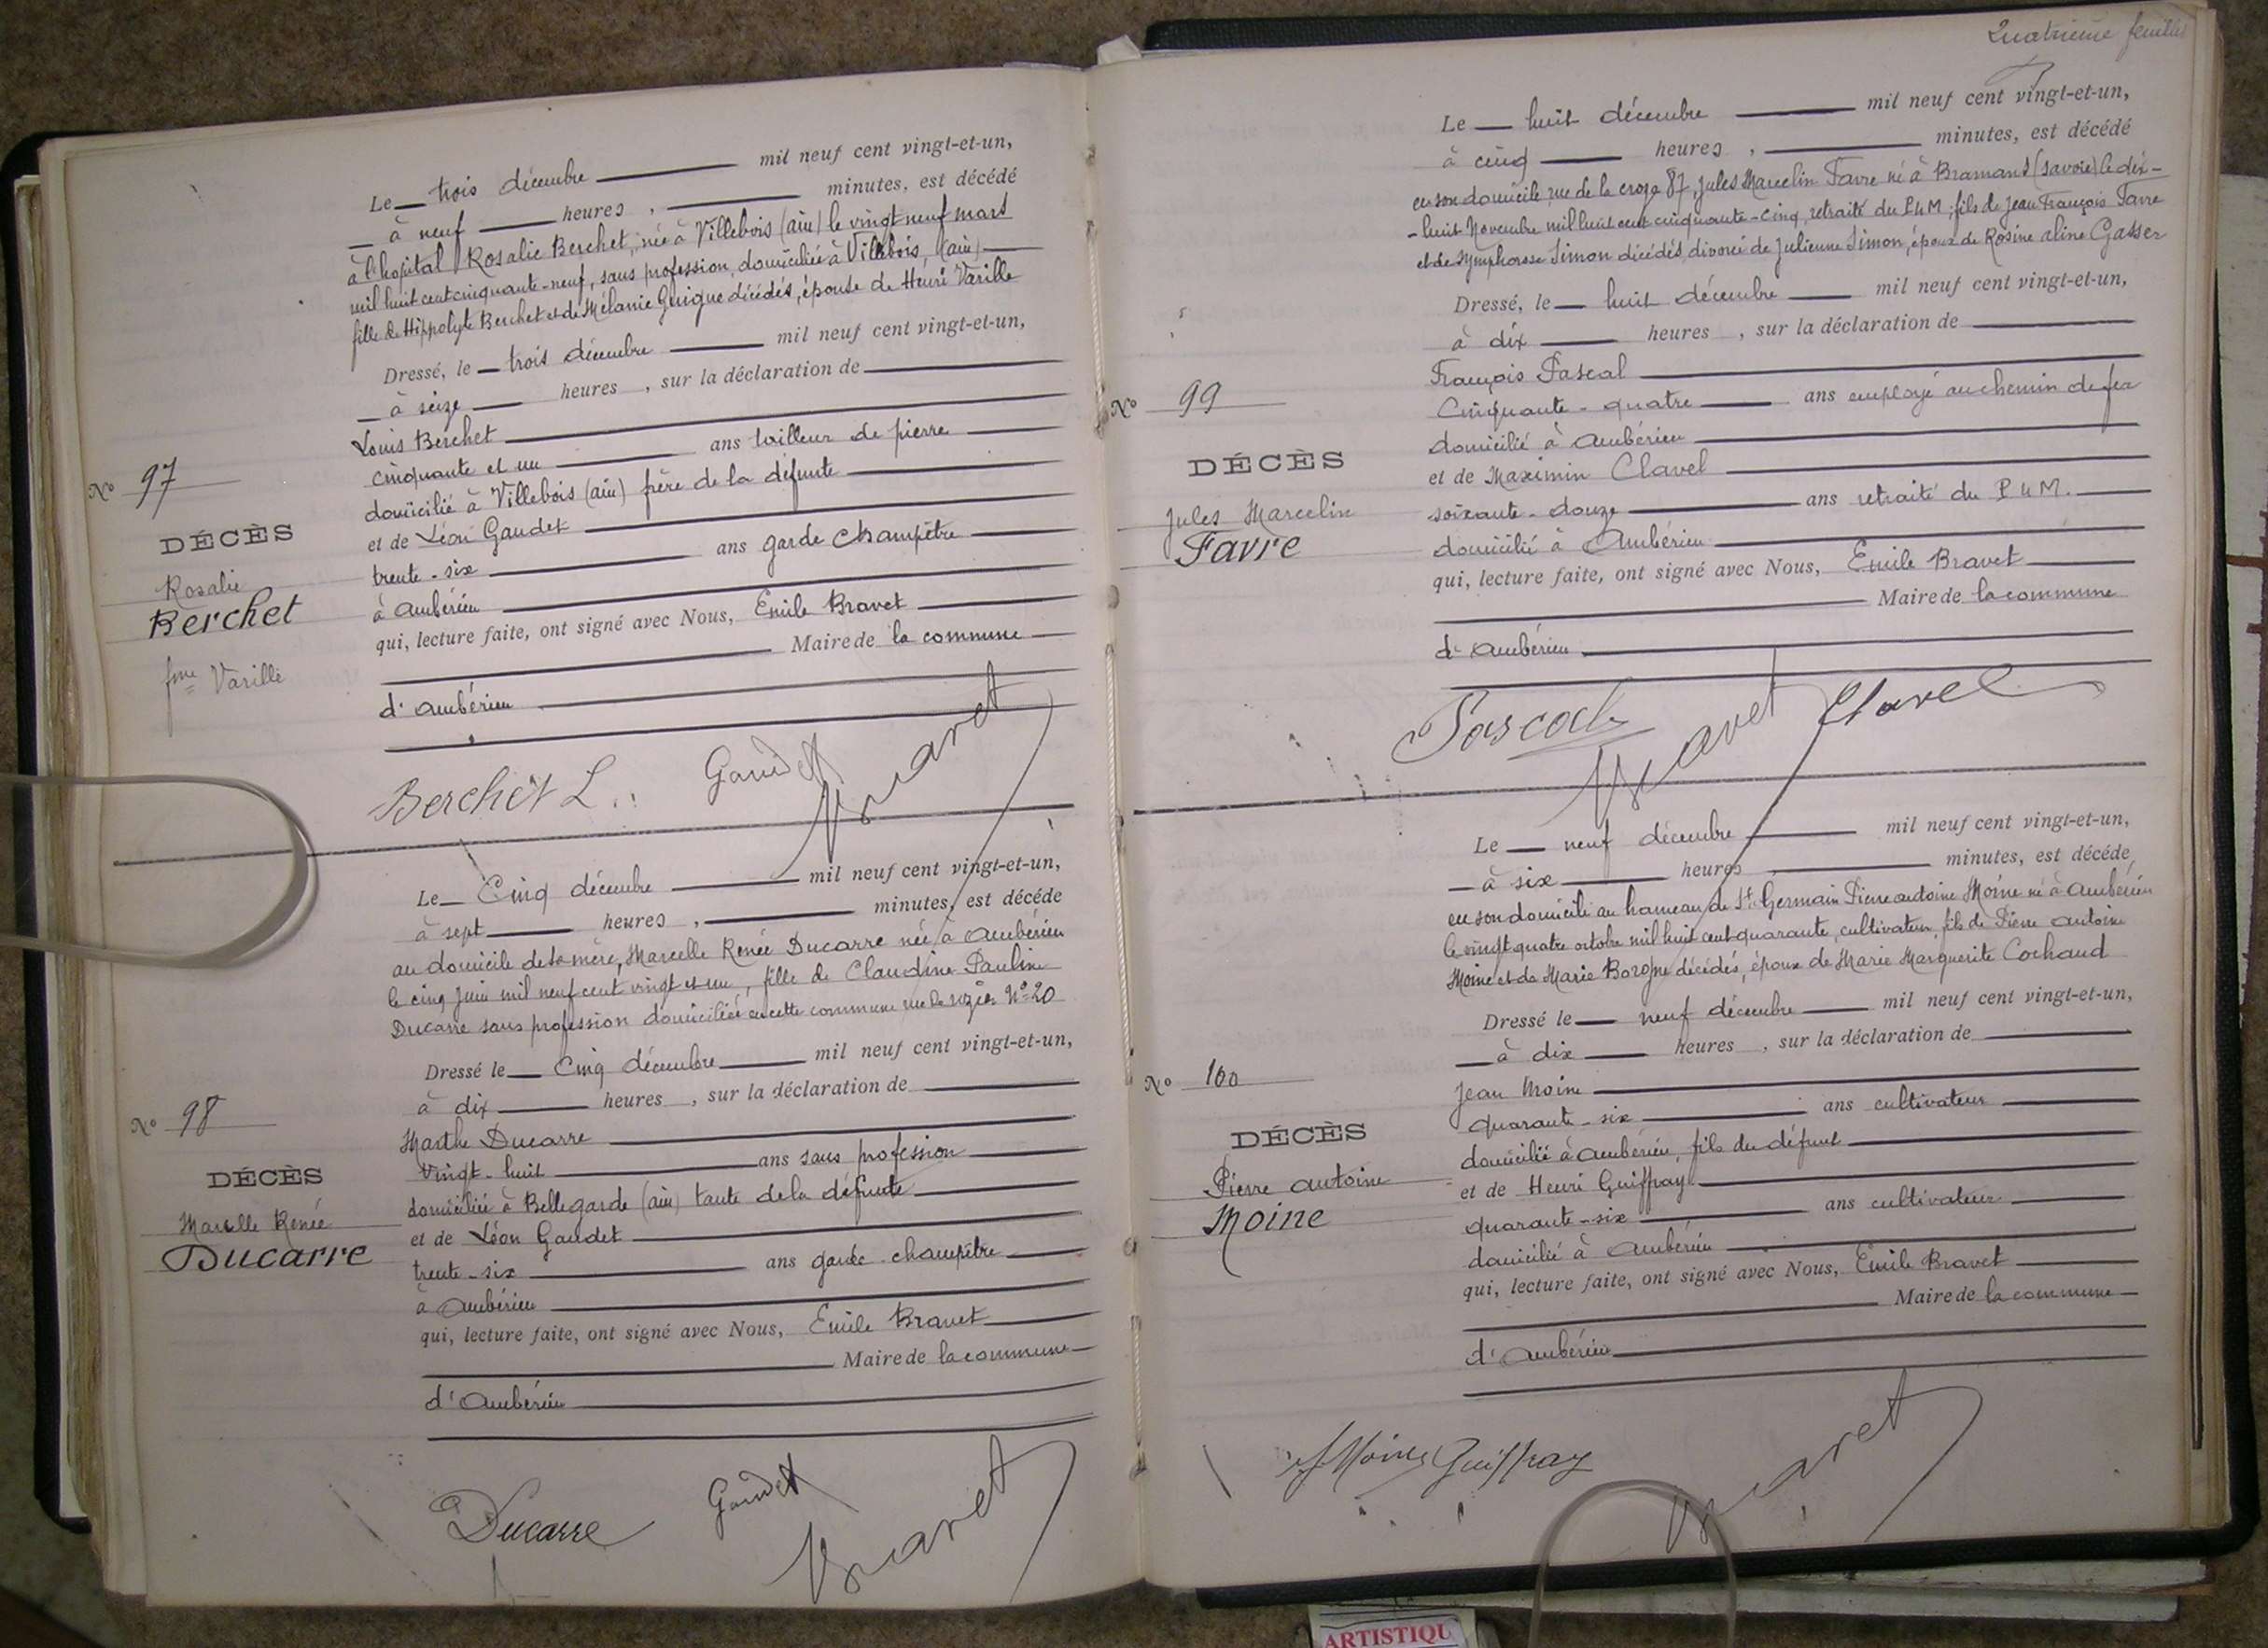 Le trois décembre mil neuf cent vingt-et-un,
à neuf heures , minutes, est décédé
à l'hopital Rosalie Berchet, née à Villebois (ain) le vingt neuf mars
mil huit cent cinquante-neuf, sans profession, domiciliée à Villebois, (ain)
fille de Hippolyte Berchet et de Mélanie Guigue décédés, épouse de Henri Varille
Dressé, le trois décembre mil neuf cent vingt-et-un,
à seize heures , sur la déclaration de
Louis Berchet
cinquante et un ans tailleur de pierre
domicilié à Villebois (ain) frère de la défunte
et de Léon Gaudet
trente-six ans garde champêtre
à Ambérieu
qui, lecture faite, ont signé avec Nous, Emile Bravet
Maire de la commune
d'Ambérieu
No 97
DÉCÈS
Rosalie
Berchet
fme Varille
Berchet L. Gaudet Bravet
Le Cinq décembre mil neuf cent vingt-et-un,
à sept heures , minutes, est décédé
au domicile de sa mère, Marcelle Renée Ducarre née à Ambérieu
le cinq Juin mil neuf cent vingt et un, fille de Claudine Pauline
Ducarre sans profession domiciliée en cette commune rue No 20
Dressé le Cinq décembre mil neuf cent vingt-et-un,
à dix heures , sur la déclaration de
Marthe Ducarre
Vingt-huit ans sans profession
domiciliée à Bellegarde (ain) tante de la défunte
et de Léon Gaudet
trente-six ans garde-champêtre
à Ambérieu
qui, lecture faite, ont signé avec Nous, Emile Bravet
Maire de la commune
d'Ambérieu
No 98
DÉCÈS
Marcelle Renée
Ducarre
Ducarre Gaudet Bravet
Quatrième feuillet
Le huit décembre mil neuf cent vingt-et-un,
à cinq heures , minutes, est décédé
en son domicile, rue de la croze 87 Jules Marcelin Favre né à Bramans (savoie) le dix-
-huit Novembre mil huit cent cinquante-cinq, retraité du P L M ; fils de Jean François Favre
et de Symphorose Simon décédés, divorcé de Julienne Simon, époux de Rosine aline Gasser
Dressé, le huit décembre mil neuf cent vingt-et-un,
à dix heures , sur la déclaration de
François Pascal
Cinquante-quatre ans employé au chemin de fer
domicilié à Ambérieu
et de Maximin Clavel
soixante-douze ans retraité du P L M.
domicilié à Ambérieu
qui, lecture faite, ont signé avec Nous, Emile Bravet
Maire de la commune
d'Ambérieu
No 99
DÉCÈS
Jules Marcelin
Favre
Pascal Bravet Clavel
Le neuf décembre mil neuf cent vingt-et-un,
à six heures , minutes, est décédé,
en son domicile au hameau de St Germain Pierre antoine Moine né à Ambérieu
le vingt quatre octobre mil huit cent quarante, cultivateur, fils de Pierre antoine
Moine et de Marie Bozogne décédés, époux de Marie Marguerite Cochaud
Dressé le neuf décembre mil neuf cent vingt-et-un,
à dix heures , sur la déclaration de
Jean Moine
quarante-six ans cultivateur
domicilié à Ambérieu, fils du défunt
et de Henri Guiffray
quarante-six ans cultivateur
domicilié à Ambérieu
qui, lecture faite, ont signé avec Nous, Emile Bravet
Maire de la commune
d'Ambérieu
No 100
DÉCÈS
Pierre antoine
Moine
Moine Guiffray Bravet
ARTISTIQU